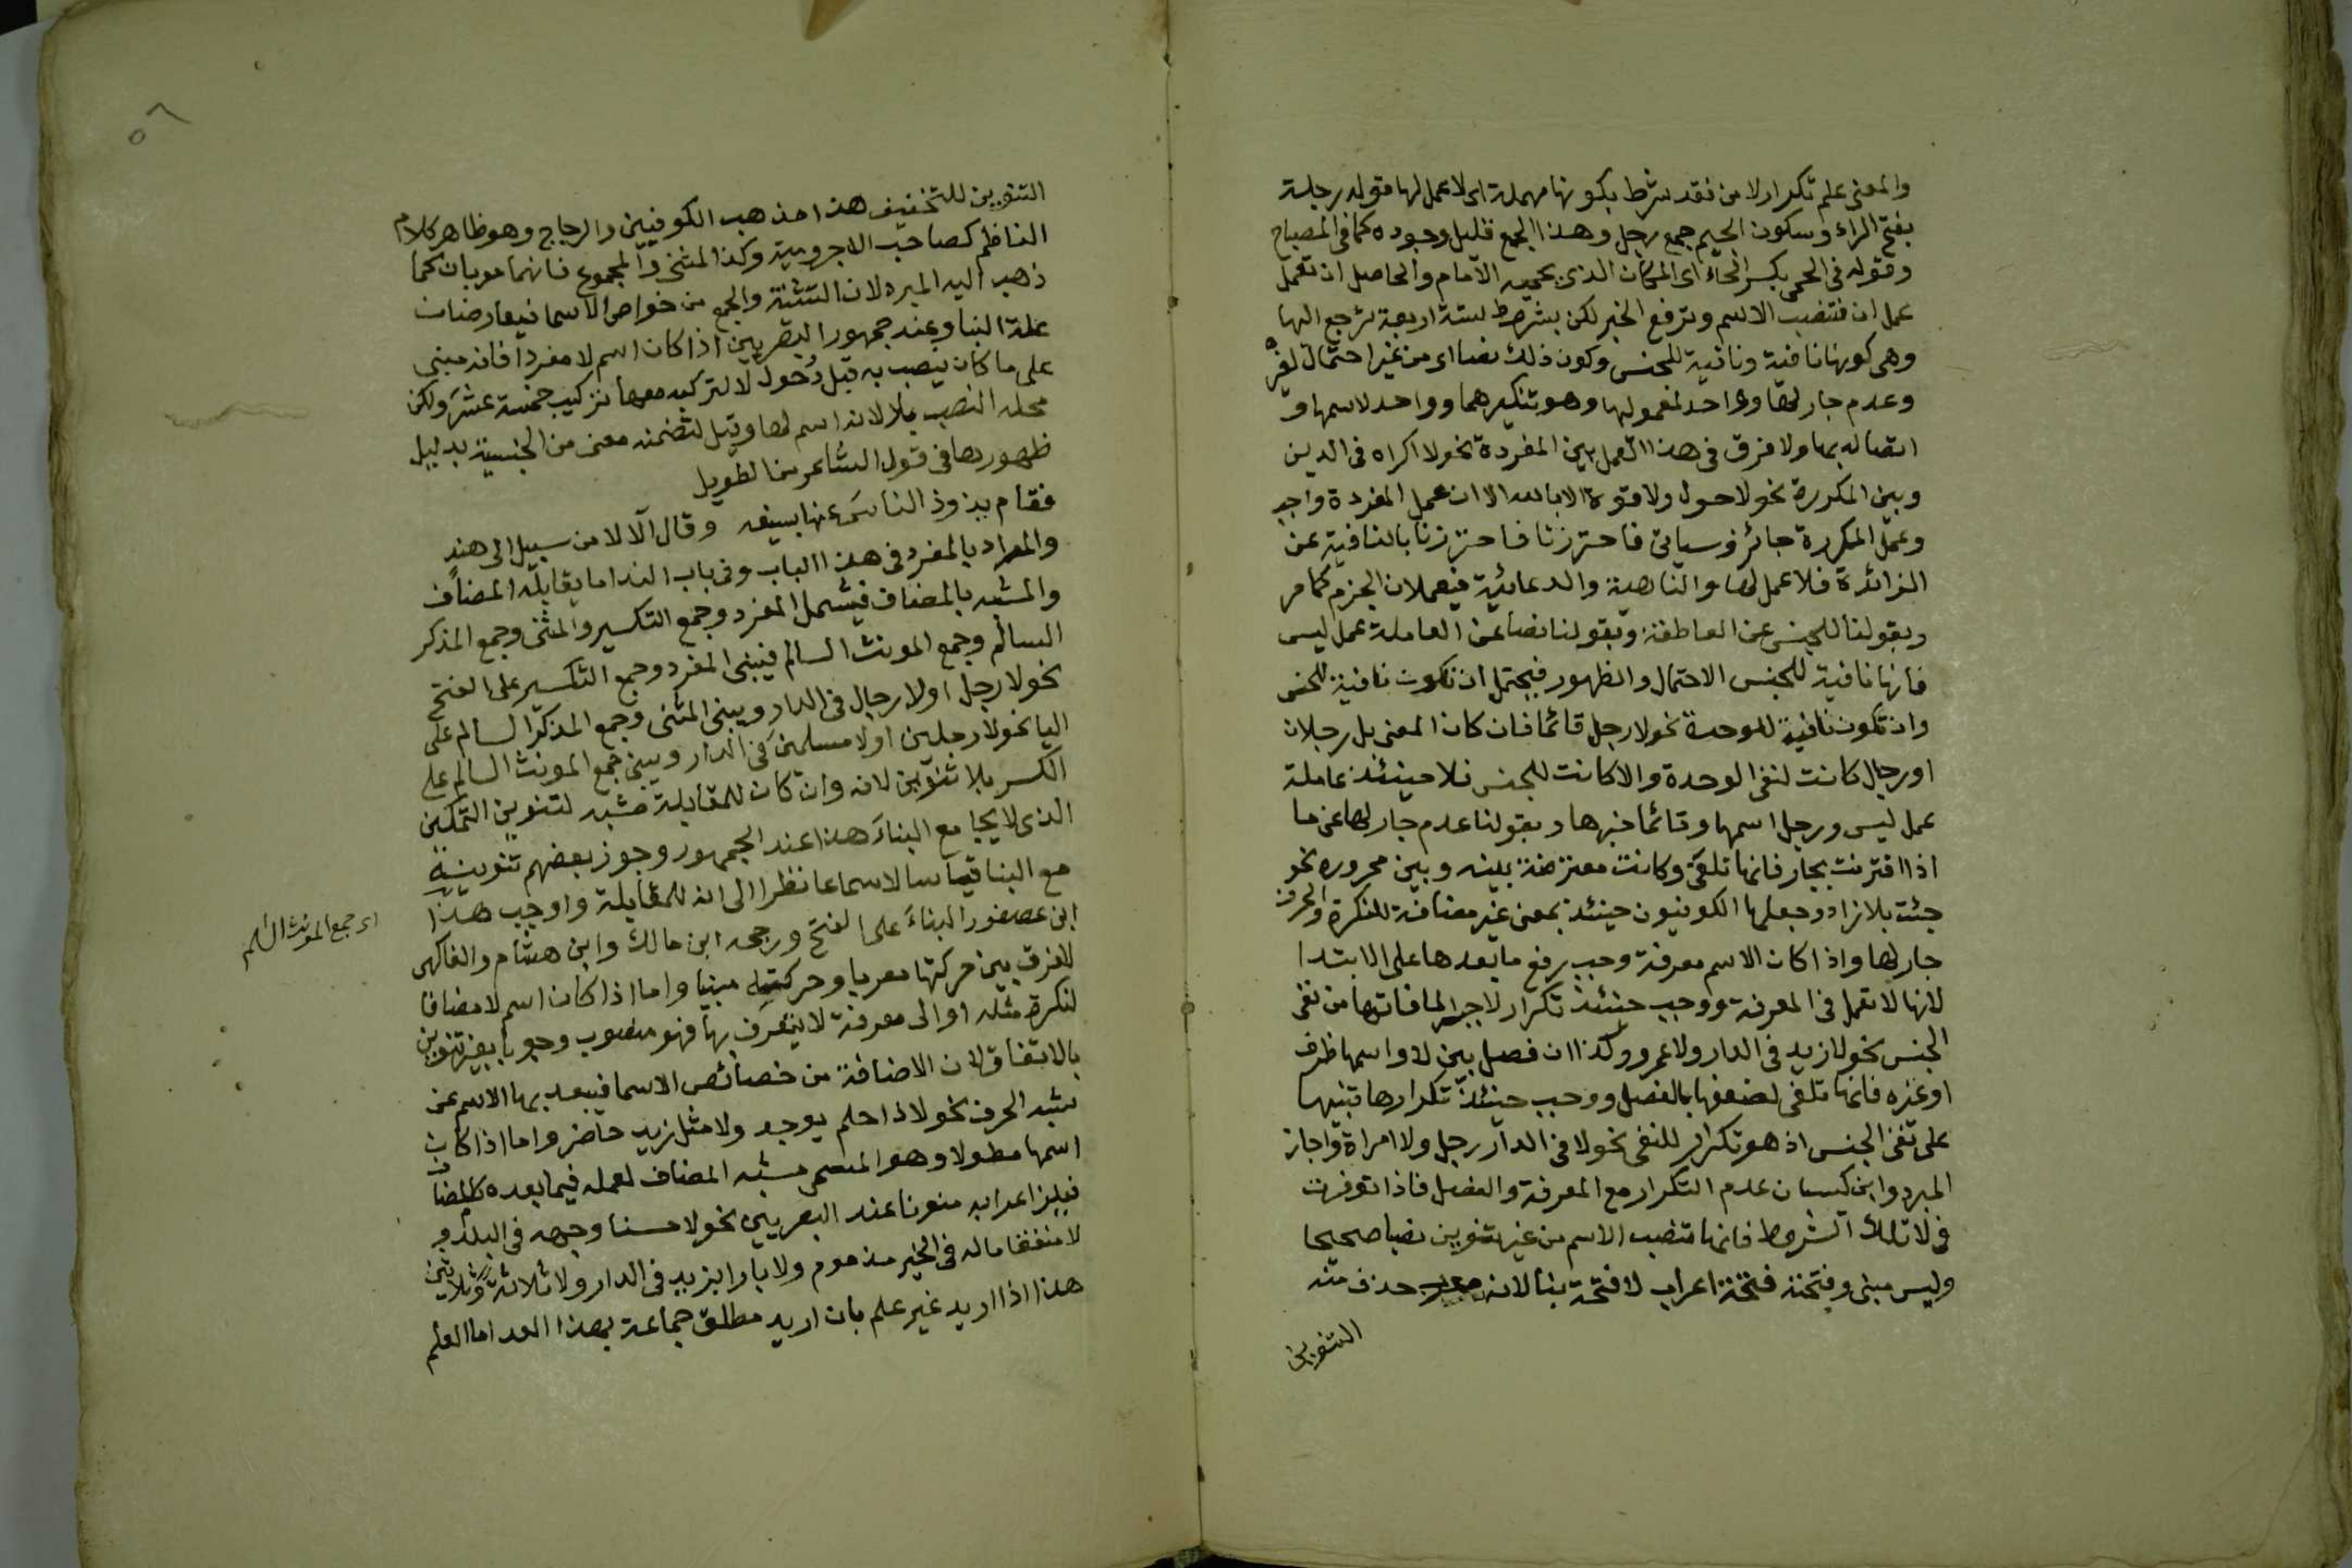 والمعنى علم تكرار لا من فقد شرط بكونها مهملة اى لا عمل لها قوله رجلة
بفتح الراء وسكون الجيم جمع رجل وهذا الجمع قليل وجوده كما فى المصباح
وقوله فى الحمى بكسر الحاء اى المكان الذى يحميه الامام والحاصل ان تعمل
عمل ان فتنصب الاسم وترفع الخبر لكن بشروط ستة اربعة ترجع اليها
وهى كونها نافية ونافية للجنس وكون ذلك نصا اى من غير احتمال لغيره
وعدم جار لها وواحد لمعموليها وهو تنكيرهما وواحد لاسمها و
اتصاله بها ولا فرق فى هذا العمل بين المفردة نحو لا اكراه فى الدين
وبين المكررة نحو لا حول ولا قوة الا بالله الا ان عمل المفردة واجب
وعمل المكررة جائز وسياتى فاحترزنا فاحترزنا بالنافية عن
الزائدة فلا عمل لها والناهية والدعائية فيعملان الجزم كما مر
وبقولنا للجنس عن العاطفة وبقولنا نصا عن العاملة عمل ليس
فانها نافية للجنس الاحتمال والظهور فيحتمل ان تكون نافية للجنس
وان تكون نافية للوحدة نحو لا رجل قائما فان كان المعنى بل رجلان
او رجال كانت لنفى الوحدة والا كانت للجنس فلا حينئذ عاملة
عمل ليس ورجل اسمها وقائما خبرها وبقولنا عدم جار لها عن ما
اذا اقترنت بجار فانها تلغى وكانت معترضة بينه وبين مجروره نحو
جئت بلا زاد وجعلها الكوفيون حينئذ بمعنى غير مضافة للنكرة والحرف
جار لها واذا كان الاسم معرفة وجب رفع ما بعدها على الابتدا
لانها لا تعمل فى المعرفة ووجب حينئذ تكرار لا جبرا لما فاتها من نفى
الجنس نحو لا زيد فى الدار ولا عمرو وكذا ان فصل بين لا واسمها ظرف
او غيره فانها تلغى لضعفها بالفصل ووجب حينئذ تكرارها تنبيها
على نفى الجنس اذ هو تكرار للنفى نحو لا فى الدار رجل ولا امراة واجاز
المبرد وابن كيسان عدم التكرار مع المعرفة والفصل فاذا توفرت
فى لا تلك الشروط فانها تنصب الاسم من غير تنوين نصبا صحيحا
وليس مبنى وفتحته فتحة اعراب لا فتحة بنا لانه معرب حذف منه
التنوين
٥٦
التنوين للتخفيف هذا مذهب الكوفيين والزجاج وهو ظاهر كلام
الناظم كصاحب الاجرومية وكذا المثنى والمجموع فانهما معربان كما
ذهب اليه المبرد لان التثنية والجمع من خواص الاسما فيعارضان
علة البنا وعند جمهور البصريين اذا كان اسم لا مفردا فانه مبنى
على ما كان ينصب به قبل دخول لا لتركبه معها تركيب خمسة عشر ولكن
محله النصب بلا لانه اسم لها وقيل لتضمنه معنى من الجنسية بدليل
ظهورها فى قول الشاعر من الطويل
فقام يذوذ الناس عنها بسيفه وقال الا لا من سبيل الى هند
والمراد بالمفرد فى هذا الباب وفى باب الندا ما يقابله المضاف
والمشبه بالمضاف فيشمل المفرد وجمع التكسير والمثنى وجمع المذكر
السالم وجمع المونث السالم فيبنى المفرد وجمع التكسير على الفتح
نحو لا رجل او لا رجال فى الدار ويبنى المثنى وجمع المذكر السالم على
اليا نحو لا رجلين او لا مسلمين فى الدار ويبنى جمع المونث السالم على
الكسر بلا تنوين لانه وان كان للمقابلة مشبه لتنوين التمكين
الذى لا يجامع البناء هذا عند الجمهور وجوز بعضهم تنوينه
مع البنا قياسا لا سماعا نظرا الى انه للمقابلة واوجب هذا
اى جمع المونث السالم
ابن عصفور البناء على الفتح ورجحه ابن مالك وابن هشام والفاكهى
للفرق بين حركتها معربا وحركته مبنيا واما اذا كان اسم لا مضافا
لنكرة مثله او الى معرفة لا يتعرف بها فهو منصوب وجوبا بغير تنوين
بالاتفاق لان الاضافة من خصائص الاسما فيبعد بها الاسم عن
شبه الحرف نحو لا ذا حلم يوجد ولا مثل زيد حاضر واما اذا كان
اسمها مطولا وهو المسمى مشبه المضاف لعمله فيما بعده كالمضاف
فيلزم اعرابه منونا عند البصريين نحو لا حسنا وجهه فى البلد و
لا منفقا ماله فى الخير مذموم ولا بارا بزيد فى الدار ولا ثلاثة وثلاثين
هذا اذا اريد غير علم بان اريد مطلق جماعة بهذا العد اما العلم